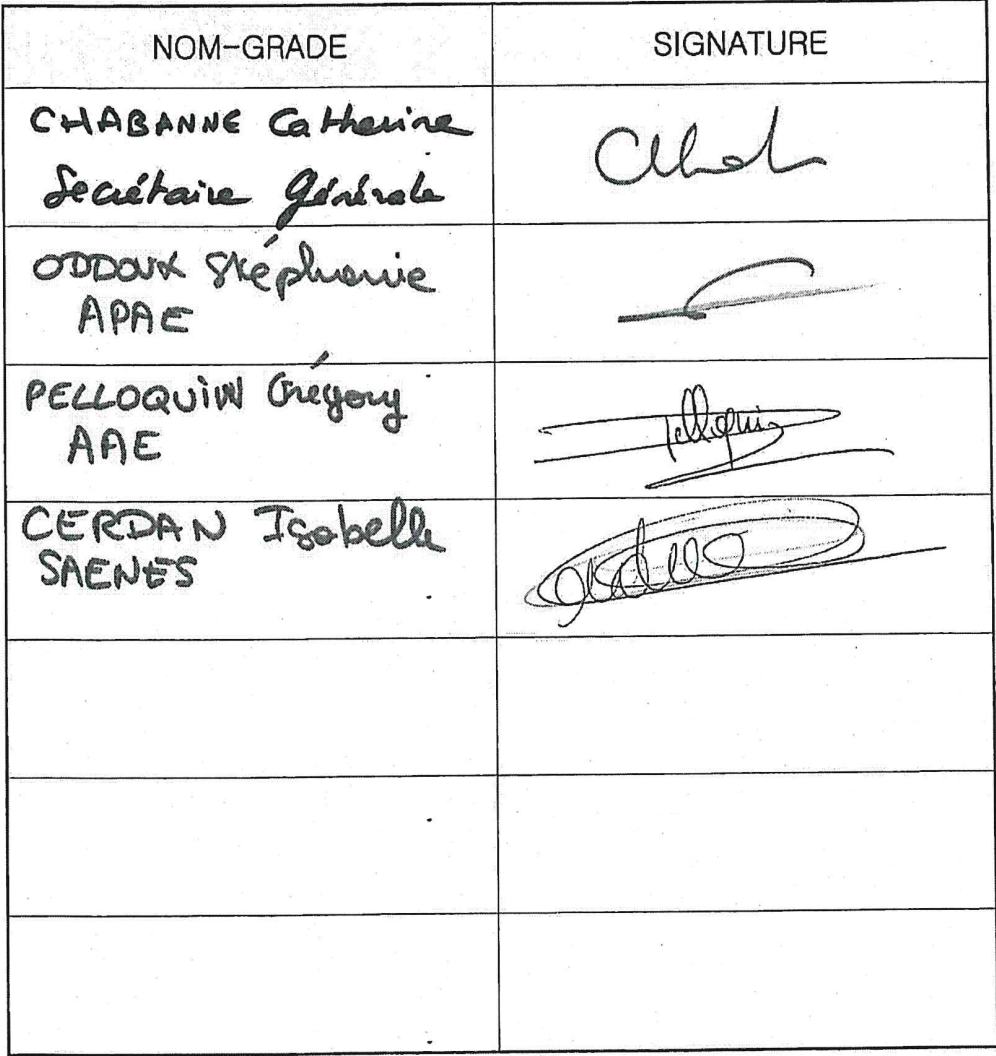 NOM-GRADE
SIGNATURE
CHABANNE Catherine
Secrétaire Générale
ODDOUX Stéphanie
APAE
PELLOQUIN Grégory
AAE
Pelloquin
CERDAN Isabelle
SAENES